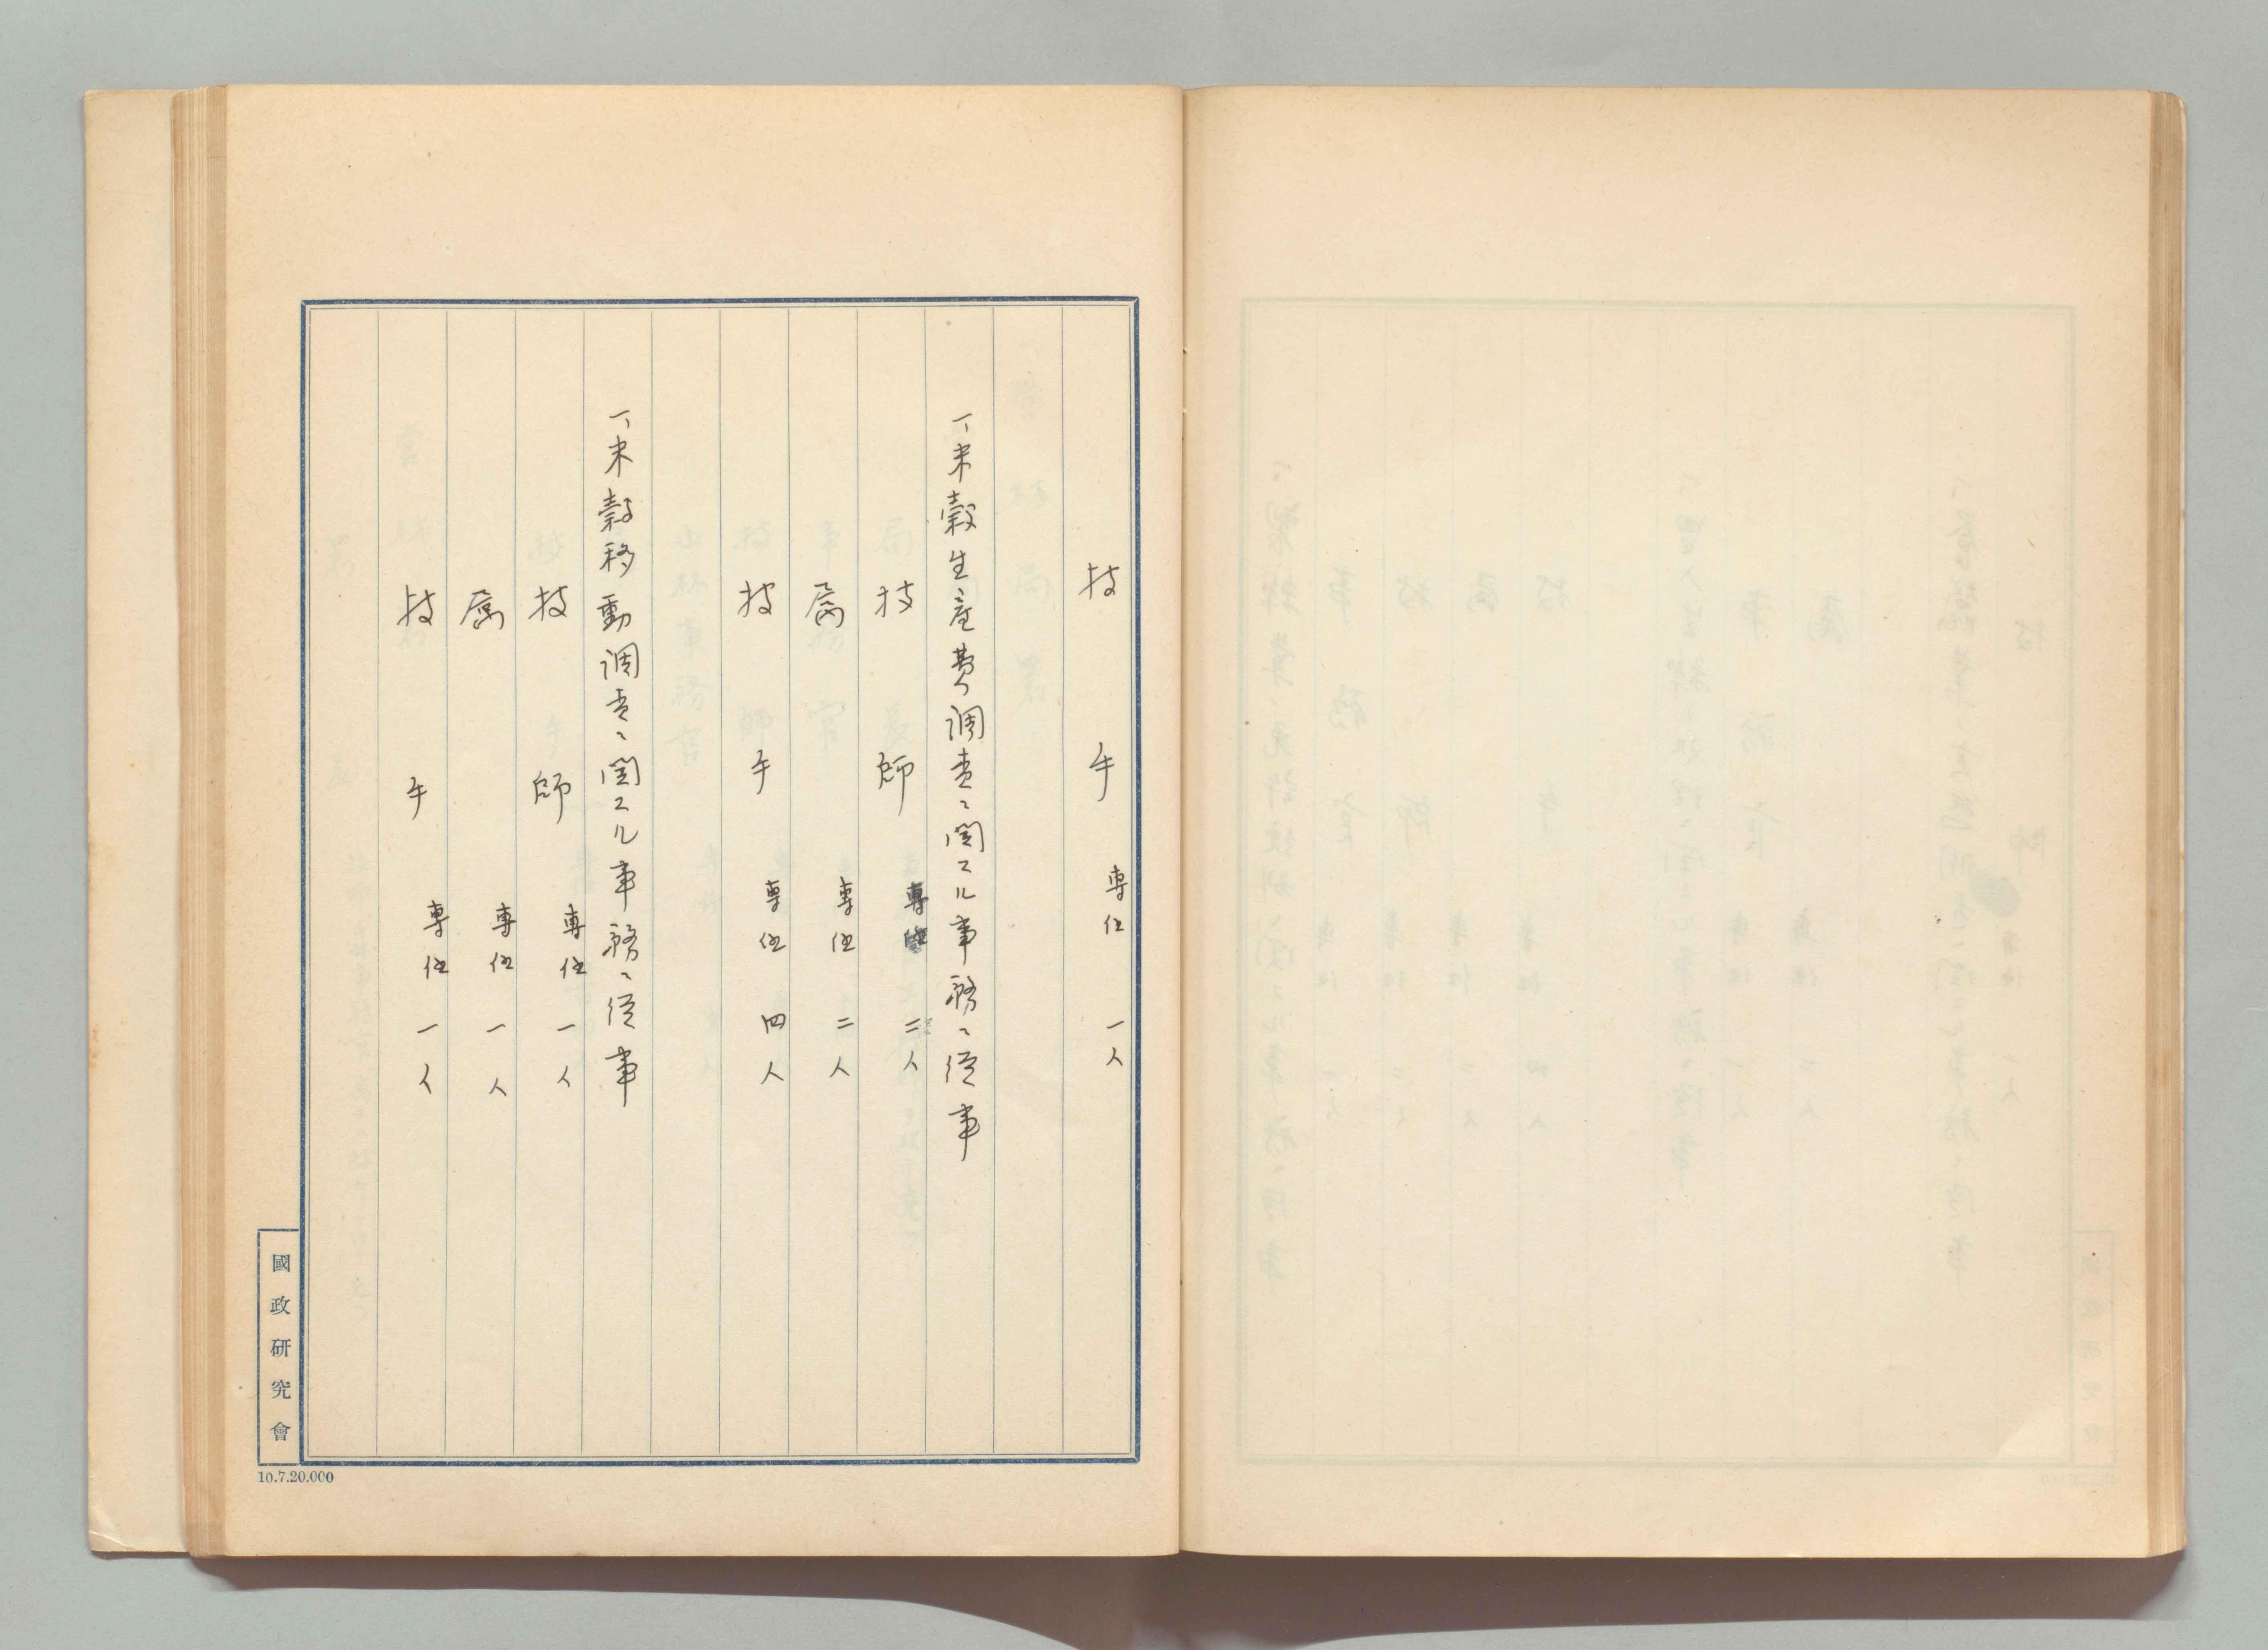 技手 専任 一人
一、米穀生産費調査ニ関スル事務ニ従事
技師 専任 二人
属 専任 二人
技手 専任 四人
一、米穀移動調査ニ関スル事務ニ従事
技師 専任 一人
属 専任 一人
技手 専任 一人
國政研究會
10.7.20.000